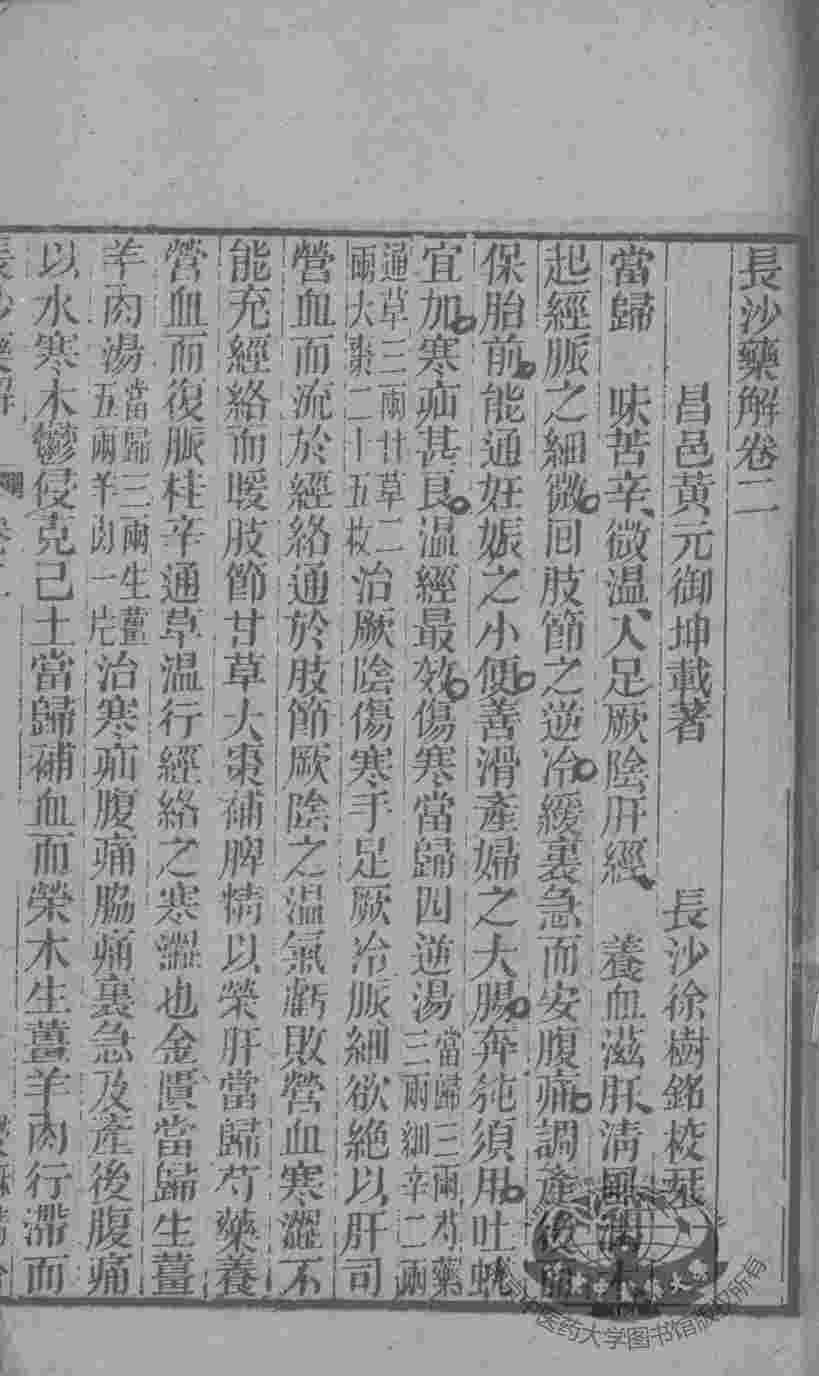 長沙藥解卷二
昌邑黃元御坤載著　長沙徐樹銘校栞
當歸　味苦辛、微溫、入足厥陰肝經、養血滋肝、清風潤木
起經脈之細微回肢節之逆冷緩裏急而安腹痛調產後而
保胎前能通妊娠之小便善滑產婦之大腸奔㹠須用吐蚘
宜加寒疝甚良溫經最效傷寒當歸四逆湯當歸三兩芍藥三兩細辛二兩
通草三兩甘草二兩大棗二十五枚治厥陰傷寒手足厥冷脈細欲絕以肝司
營血而流於經絡通於肢節厥陰之溫氣虧敗營血寒澀不
能充經絡而暖肢節甘草大棗補脾精以榮肝當歸芍藥養
營血而復脈桂辛通草溫行經絡之寒澀也金匱當歸生薑
羊肉湯當歸三兩生薑五兩羊肉一斤治寒疝腹痛脇痛裏急及產後腹痛
以水寒木鬱侵克己土當歸補血而榮木生薑羊肉行滯而
長沙藥解
中医药大学图书馆版权所有